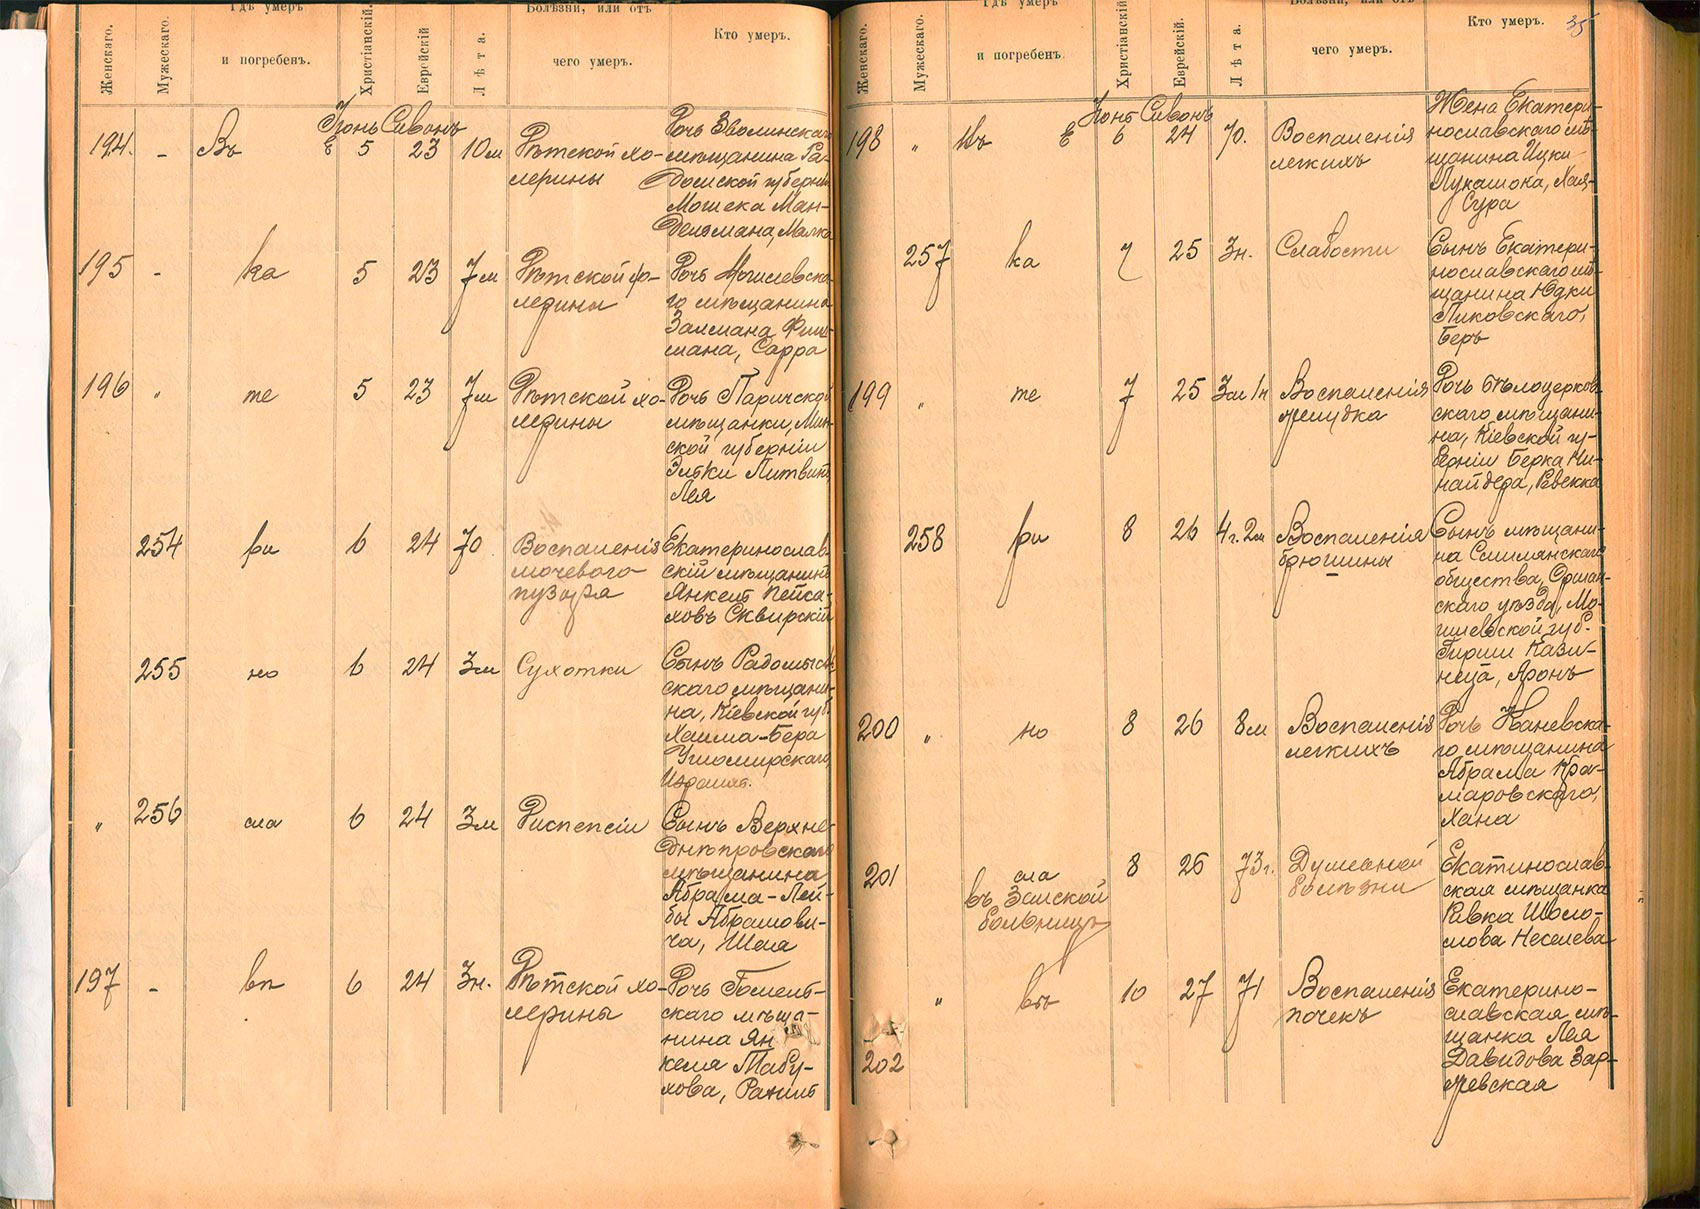 Женскаго.
Мужескаго.
Гдѣ умеръ
и погребенъ.
Христіанскій.
Еврейскій
Лѣта.
Болѣзни, или отъ
чего умеръ.
Кто умеръ.
Іюнь Сивонъ
194. - Въ Е 5 23 10м Дѣтской хо-
лерины
Дочь Зволинскаго
мѣщанина Ра-
домской губерніи
Мошека Ман-
дельмана, Малка
195 - ка 5 23 7м Дѣтской хо-
лерины
Дочь Могилевска-
го мѣщанина
Залмана Фиш-
мана, Сарра
196 " те 5 23 7м Дѣтской хо-
лерины
Дочь Паричской
мѣщанки, Мин-
ской губерніи
Эльки Литвинъ,
Лея
254 ри 6 24 70 Воспаленія
мочевого
пузыря
Екатеринослав-
скій мѣщанинъ
Янкель Пейса-
ховъ Сквирскій
255 но 6 24 3м Сухотки
Сынъ Радомысль-
скаго мѣщани-
на, Кіевской губ.
Хаима-Бера
Ушомирскаго
Израиль.
" 256 сла 6 24 3м Диспепсіи
Сынъ Верхне-
днѣпровскаго
мѣщанина
Абрама-Лей-
бы Абрамови-
ча, Шема
197 - вѣ 6 24 3н. Дѣтской хо-
лерины
Дочь Гомель-
скаго мѣща-
нина Ян
келя Мабу-
хова, Рахиль
Женскаго.
Мужескаго.
Гдѣ умеръ
и погребенъ.
Христіанскій
Еврейскій.
Лѣта.
Болѣзни, или отъ
чего умеръ.
Кто умеръ.
35
Іюнь Сивонъ
198 " Въ Е 6 24 70. Воспаленія
легкихъ
Жена Екатери-
нославскаго мѣ-
щанина Ицки
Лукашока, Хая-
Сура
257 ка 7 25 3н. Слабости
Сынъ Екатери-
нославскаго мѣ-
щанина Юдки
Пиковскаго,
Беръ
199 " те 7 25 3м 1н Воспаленія
желудка
Дочь Бѣлоцерков-
скаго мѣщани-
на, Кіевской гу-
берніи Берка
Ревекка
258 ри 8 26 4г. 2м Воспаленія
брюшины
Сынъ мѣщани-
на
общества, Оршан-
скаго уѣзда, Мо-
гилевской губ.
Гирши Кази-
неца, Аронъ
200 " но 8 26 8м Воспаленія
легкихъ
Дочь Каневска-
го мѣщанина
Абрама Кра-
маровскаго,
Хана
201 сла 8 26 73г. Душевной
болѣзни
въ Земской
больницѣ
Екатинослав-
ская мѣщанка
Ривка Шоло-
мова Неселева
" вѣ 10 27 71 Воспаленія
почекъ
202
Екатерино-
славская мѣ-
щанка Лея
Давидова Зар-
жевская